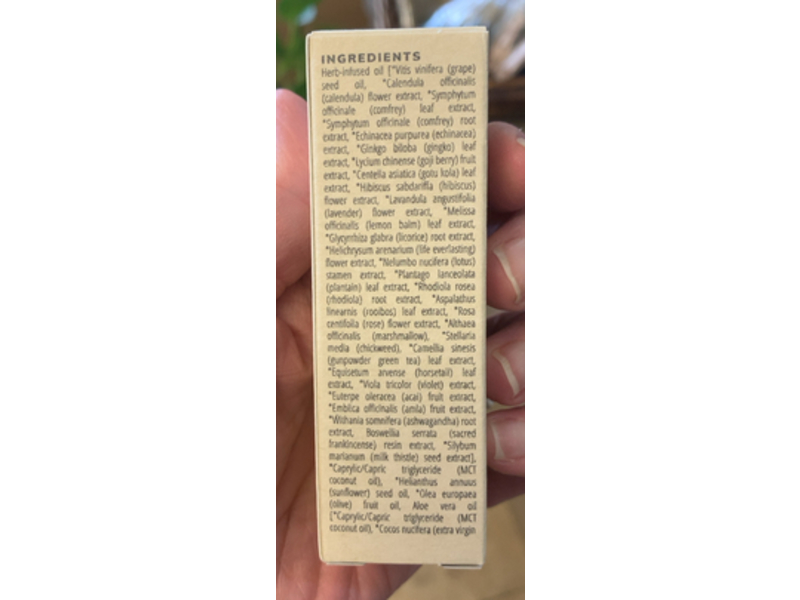 INGREDIENTS
Herb-infused oil [*Vitis vinifera (grape)
seed oil, *Calendula officinalis
(calendula) flower extract, *Symphytum
officinale (comfrey) leaf extract,
*Symphytum officinale (comfrey) root
extract, *Echinacea purpurea (echinacea)
extract, *Ginkgo biloba (gingko) leaf
extract, *Lycium chinense (goji berry) fruit
extract, *Centella asiatica (gotu kola) leaf
extract, *Hibiscus sabdariffa (hibiscus)
flower extract, *Lavandula angustifolia
(lavender) flower extract, *Melissa
officinalis (lemon balm) leaf extract,
*Glycyrrhiza glabra (licorice) root extract,
*Helichrysum arenarium (life everlasting)
flower extract, *Nelumbo nucifera (lotus)
stamen extract, *Plantago lanceolata
(plantain) leaf extract, *Rhodiola rosea
(rhodiola) root extract, *Aspalathus
linearnis (rooibos) leaf extract, *Rosa
centifolia (rose) flower extract, *Althaea
officinalis (marshmallow), *Stellaria
media (chickweed), *Camellia sinesis
(gunpowder green tea) leaf extract,
*Equisetum arvense (horsetail) leaf
extract, *Viola tricolor (violet) extract,
*Euterpe oleracea (acai) fruit extract,
*Emblica officinalis (amla) fruit extract,
*Withania somnifera (ashwagandha) root
extract, Boswellia serrata (sacred
frankincense) resin extract, *Silybum
marianum (milk thistle) seed extract],
*Caprylic/Capric triglyceride (MCT
coconut oil), *Helianthus annuus
(sunflower) seed oil, *Olea europaea
(olive) fruit oil, Aloe vera oil
[*Caprylic/Capric triglyceride (MCT
coconut oil), *Cocos nucifera (extra virgin